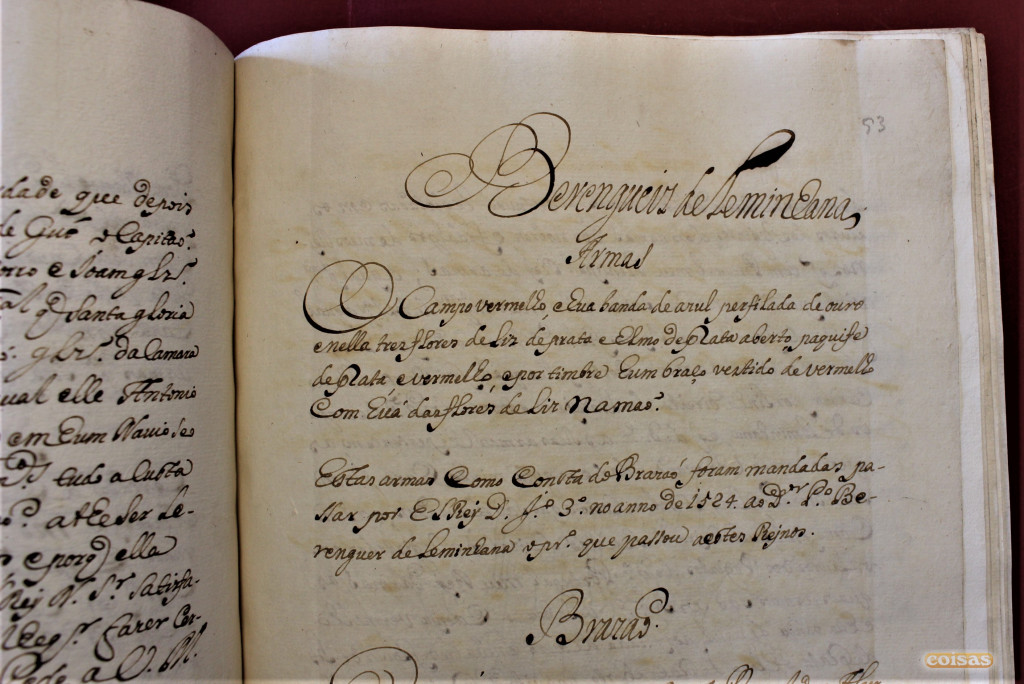 dade que depois
de Gué e Capitaõ.
e Joam glz.
q̃ Santa gloria
glz. da Camara
qual elle Antonio
em hum Navio seo
tudo a Custa
athe ser Le-
e porq̃ ella
Rey N. Sr. satisfa-
fazer Cer-
Pede a V. M.
93
Berengueis de Leminhana,
Armas
O Campo vermelho, e hũa banda de azul perfilada de ouro
e nella tres flores de Liz de prata e Elmo de Plata aberto, paquife
de Plata e vermelho, e por timbre hum braço vestido de vermelho
Com huã das flores de Liz Na maõ.
Estas armas Como Consta de Brazaõ foram mandadas pa-
ssar por El Rey D. Jº. 3º. no anno de 1524. ao Dr. Pº. Be-
renguer de Leminhana o pr. que passou a estes Reynos.
Brazaõ.
coisas